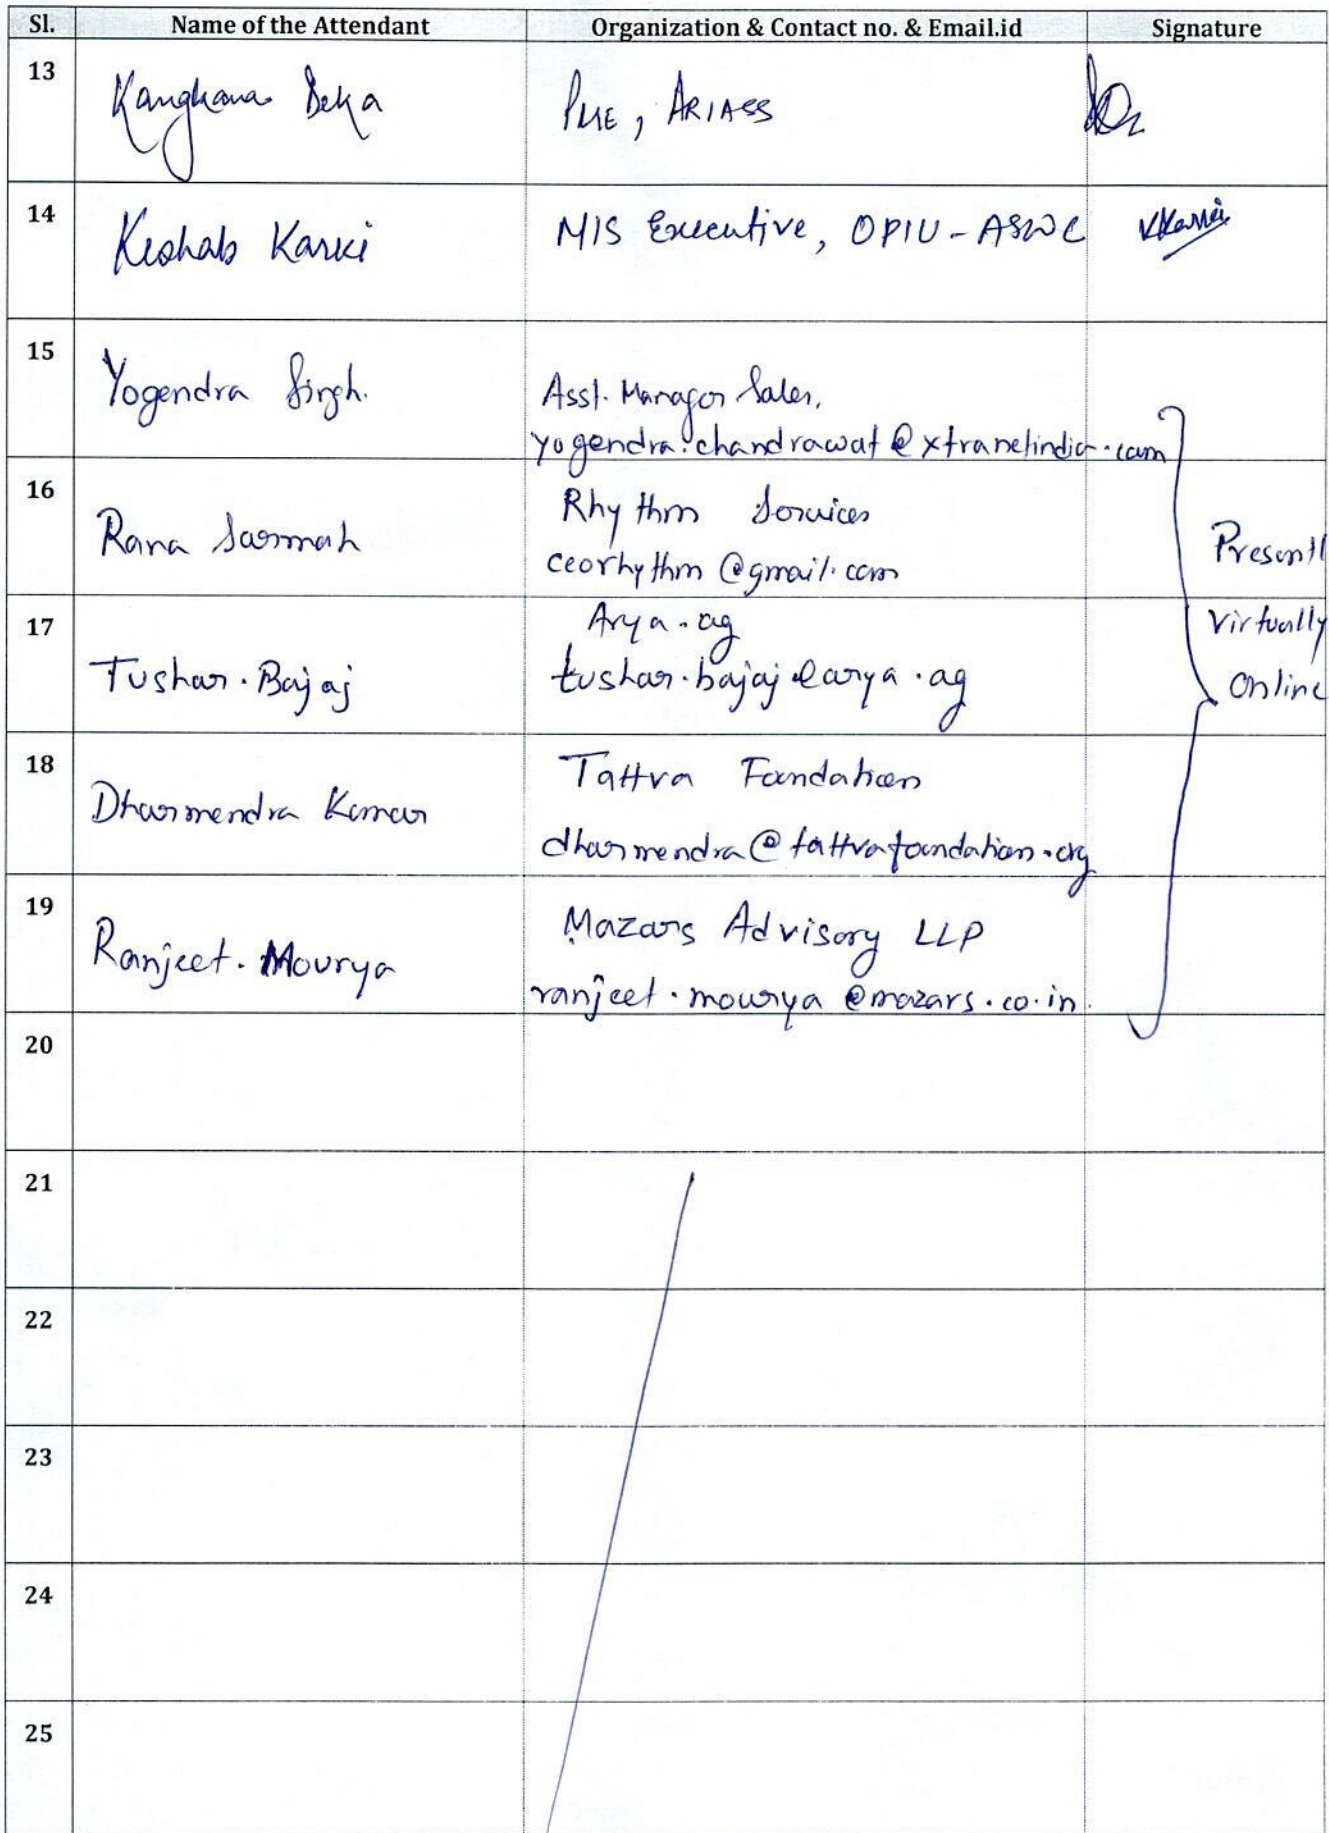 Sl. Name of the Attendant Organization & Contact no. & Email.id Signature
13 Kangkana Deka PME, ARIASS
14 Keshab Karki MIS Executive, OPIU-ASWC KKarki
15 Yogendra Singh. Asst. Manager Sales,
yogendra.chandrawat@xtranetindia.com
16 Rana Sarmah Rhythm Services
ceorhythm@gmail.com
Present
17 Arya.ag
Virtually
Tushar. Bajaj tushar.bajaj@arya.ag
Online
18 Tattva Foundation
Dharmendra Kumar
dharmendra@tattvafoundation.org
19 Mazars Advisory LLP
Ranjeet. Mourya
ranjeet.mourya@mazars.co.in.
20
21
22
23
24
25